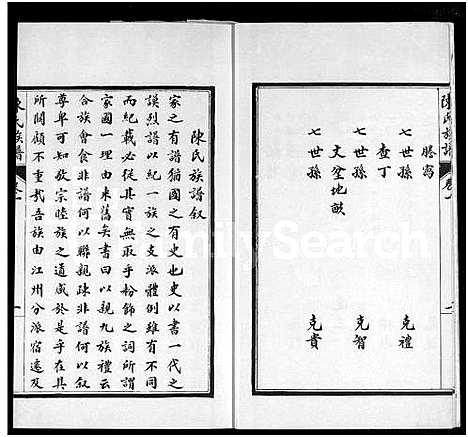 陳氏族譜
卷一
一
謄寫
七世孫 克禮
查丁
七世孫 克智
文塋地畝
七世孫 克貴
陳氏族譜叙
家之有譜猶國之有史也史以書一代之
謨烈譜以紀一族之支派體例雖有不同
而紀載必從其實無取乎粉飾之詞所謂
家國一理由來舊矣書曰以親九族禮云
合族會食非譜何以聯親疎非譜何以叙
尊卑可知敦宗睦族之道咸於是乎在其
所關顧不重哉吾族由江州分派宿遠及
陳氏族譜
卷一
一
FamilySearch